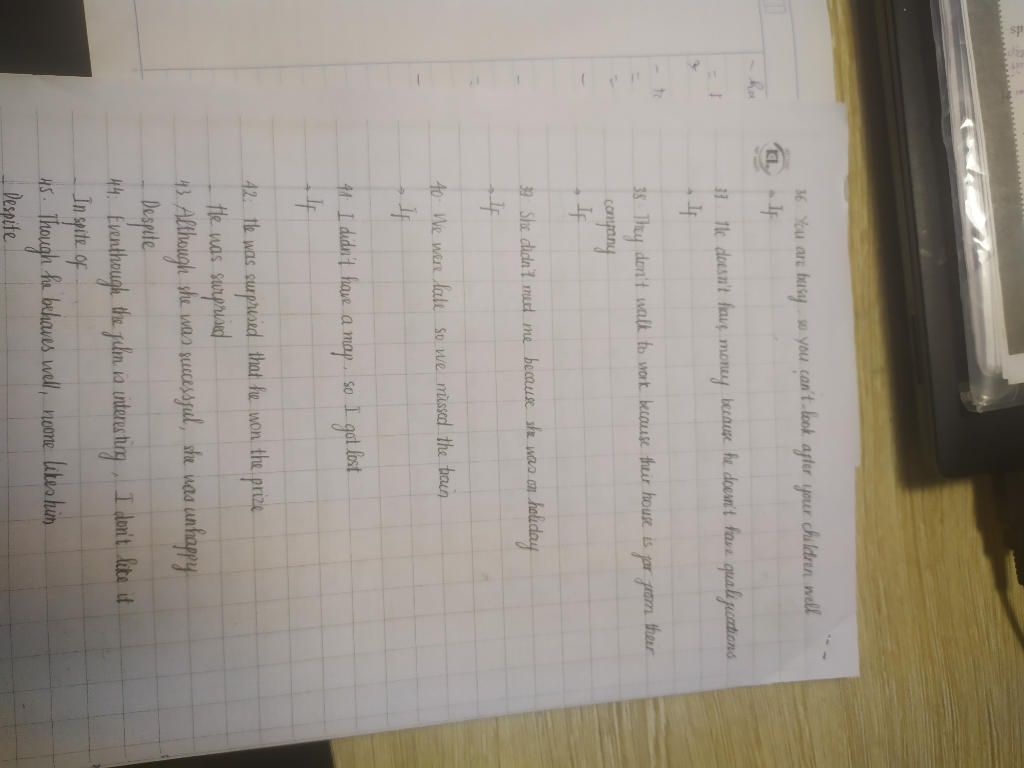 36. You are busy, so you can't look after your children well
→ If
37. He doesn't have money because he doesn't have qualifications
→ If
38. They don't walk to work because their house is far from their
company
→ If
39. She didn't meet me because she was on holiday
→ If
40. We were late so we missed the train
→ If
41. I didn't have a map, so I got lost
→ If
42. He was surprised that he won the prize
- He was surprised
43. Although she was successful, she was unhappy
- Despite
44. Eventhough the film is interesting, I don't like it
- In spite of
45. Though he behaves well, noone likes him
- Despite